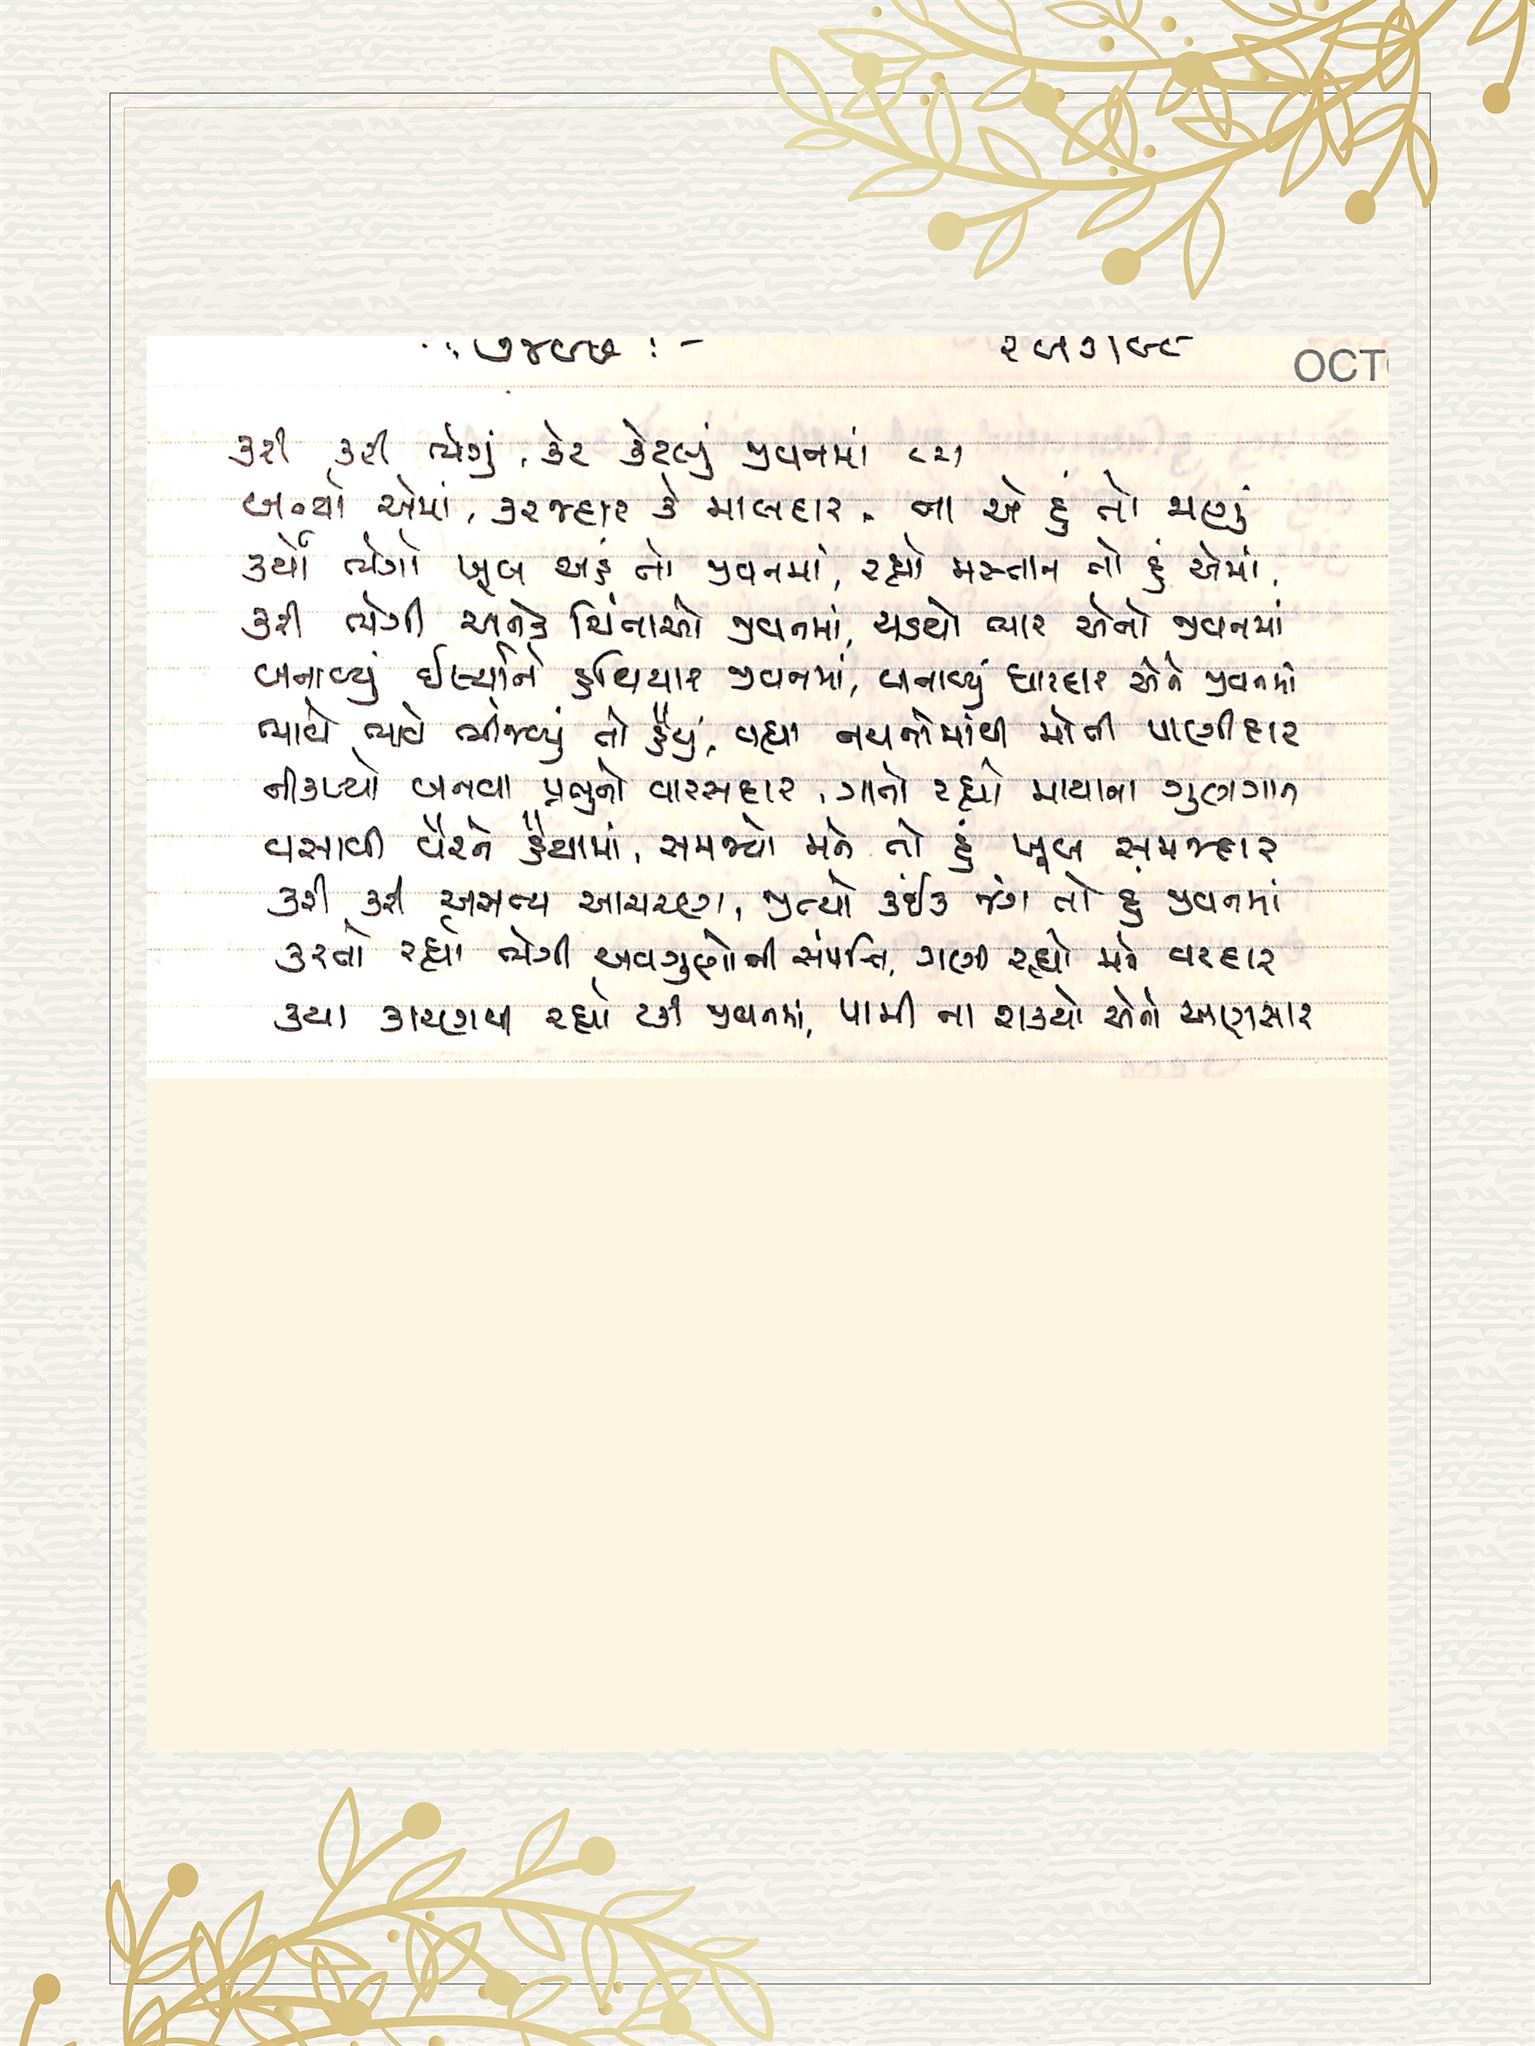 OCT
કરી કરી ભેગું, કેર કેટલું જીવનમાં
બન્યો એમાં, કરજદાર કે માલદાર, ના એ હું તો જાણું
કર્યો ભેગો ખૂબ અહં તો જીવનમાં, રહ્યો મસ્તાન તો હું એમાં,
કરી ભેગી અનેક ચિંતાઓ જીવનમાં, ચડયો ભાર એનો જીવનમાં
બનાવ્યું ઈર્ષ્યાને હથિયાર જીવનમાં, બનાવ્યું ધારદાર એને જીવનમાં
ભાવે ભાવે ભીંજવ્યું તો હૈયું, વહ્યા નયનોમાંથી મોતી પાણીદાર
નીકળ્યો બનવા પ્રભુનો વારસદાર, ગાતો રહ્યો માયાના ગુણગાન
વસાવી વૈરને હૈયામાં, સમજ્યો મને તો હું ખૂબ સમજદાર
કરી કરી અસત્ય આચરણ, જીત્યો કંઈક જંગ તો હું જીવનમાં
કરતો રહ્યો ભેગી અવગુણોની સંપત્તિ, ગણી રહ્યો મને
કયા કારણે રહ્યો ટકી જીવનમાં, પામી ના શકયો એનો અણસાર